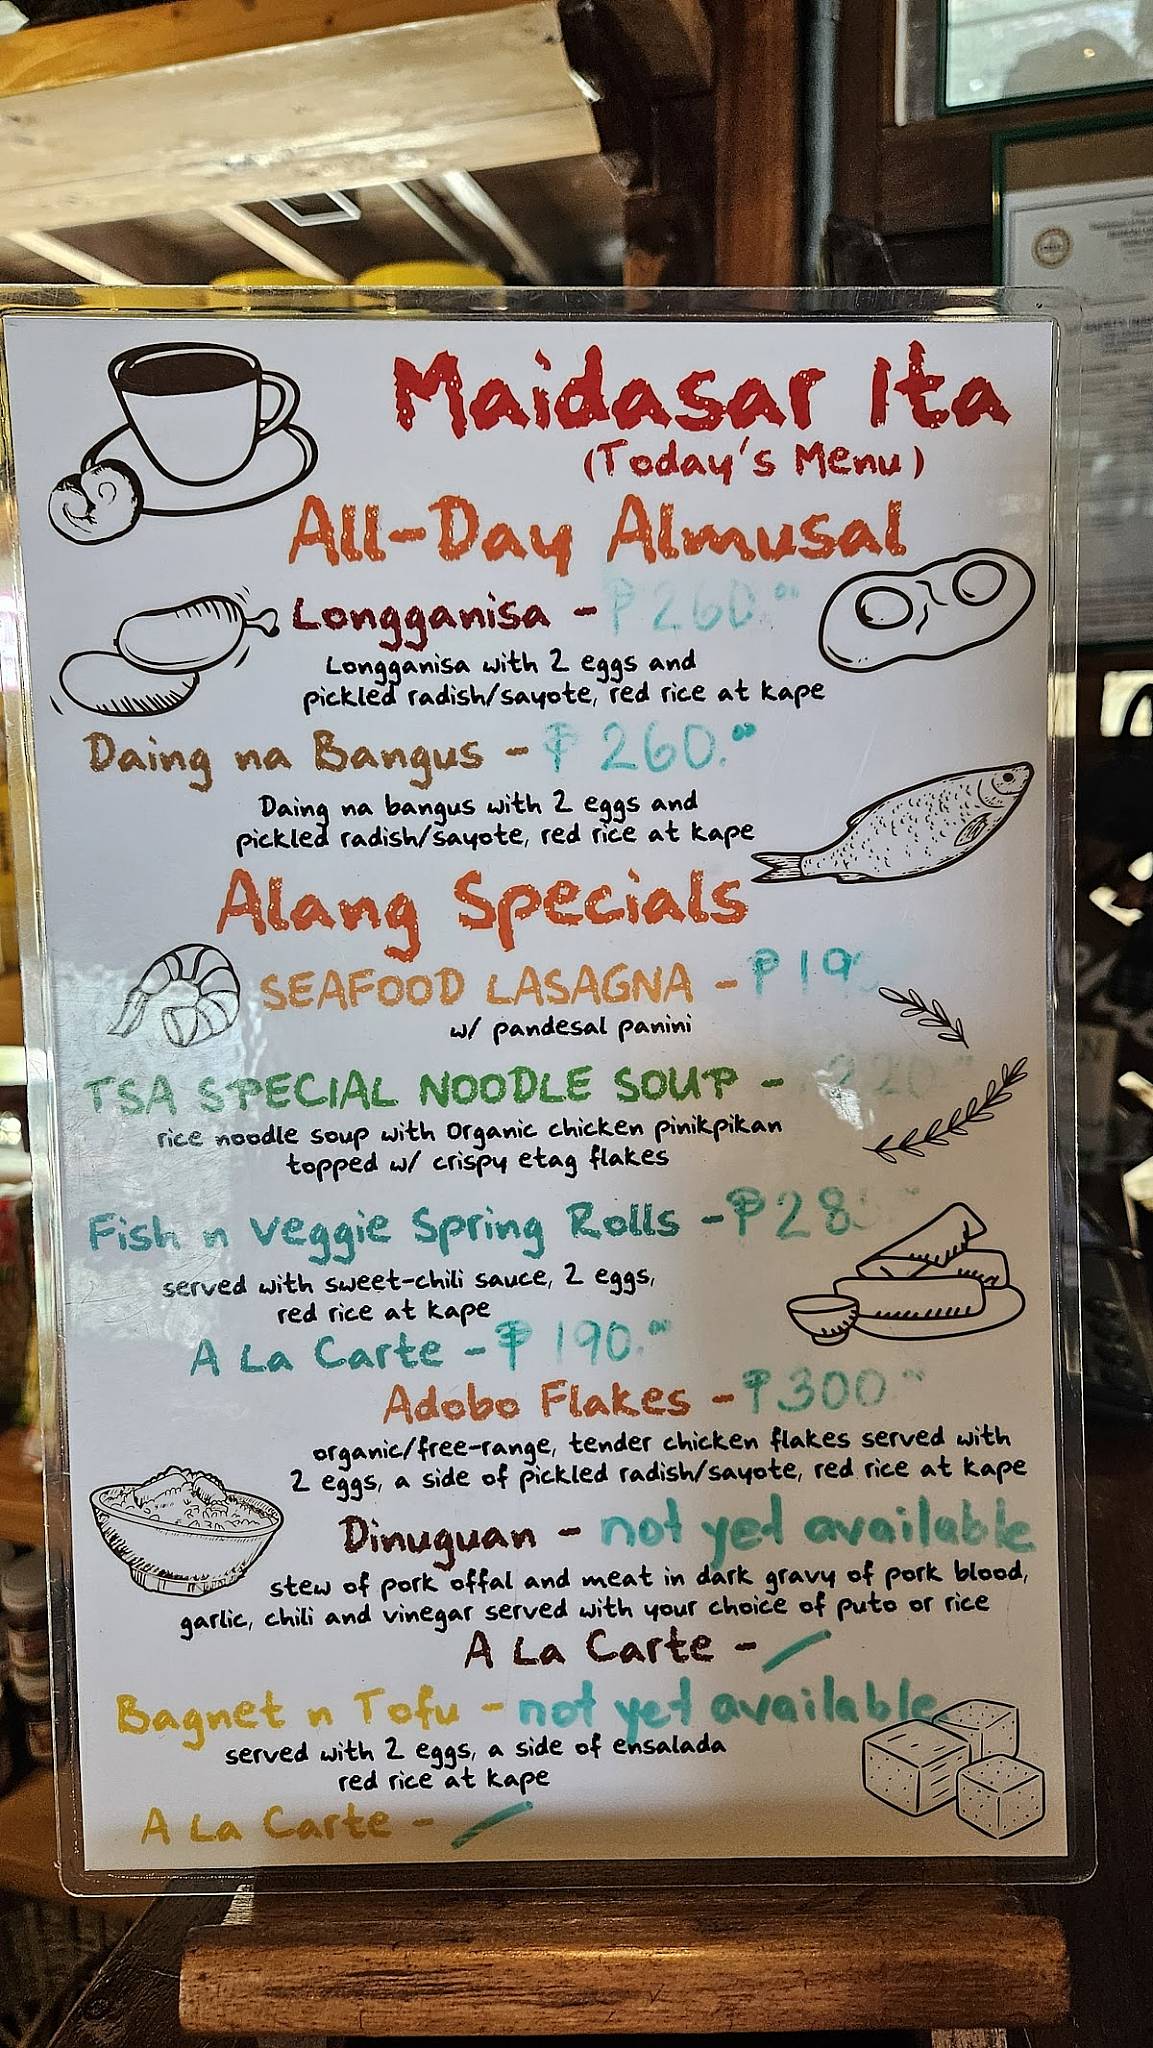 Maidasar Ita
(Today's Menu)
All-Day Almusal
Longganisa - ₱260.00
Longganisa with 2 eggs and
pickled radish/sayote, red rice at kape
Daing na Bangus - ₱260.00
Daing na bangus with 2 eggs and
pickled radish/sayote, red rice at kape
Alang Specials
SEAFOOD LASAGNA -
w/ pandesal panini
TSA SPECIAL NOODLE SOUP - 220
rice noodle soup with Organic chicken pinikpikan
topped w/ crispy etag flakes
Fish n Veggie Spring Rolls -
served with sweet-chili sauce, 2 eggs,
red rice at kape
A La Carte - ₱190.00
Adobo Flakes - ₱300.00
organic/free-range, tender chicken flakes served with
2 eggs, a side of pickled radish/sayote, red rice at kape
Dinuguan - not yet available
stew of pork offal and meat in dark gravy of pork blood,
garlic, chili and vinegar served with your choice of puto or rice
A La Carte -
Bagnet n Tofu - not yet available
served with 2 eggs, a side of ensalada
red rice at kape
A La Carte -